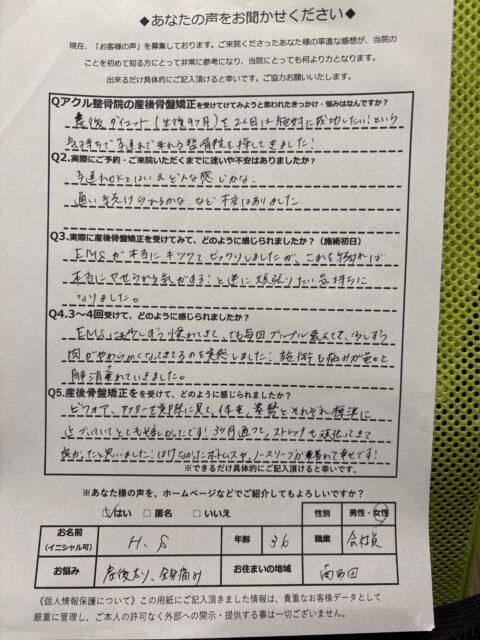 ◆あなたの声をお聞かせください◆
現在、「お客様の声」を募集しております。ご来院くださったあなた様の率直な感想が、当院の
ことを初めて知る方にとって非常に参考になり、当院にとっても何より力となります。
出来るだけ具体的にご記入頂けると幸いです。ご協力お願いいたします。
Qアクル整骨院の産後骨盤矯正を受けてけてみようと思われたきっかけ・悩みはなんですか?
産後ダイエット(生後9ヶ月)を2人目は絶対に成功したい!という
気持ちで子連れで来れる整骨院を探してきました!
Q2.実際にご予約・ご来院いただくまでに迷いや不安はありましたか?
子連れOKとはいえどんな感じかな、
通い続けられるかな など不安はありました
Q3.実際に産後骨盤矯正を受けてみて、どのように感じられましたか?(施術初日)
EMSが本当にキツクてビックリしましたが、これを頑張れば
本当にやせられる気がする!と逆に頑張りたい気持ちに
なりました。
Q4.3〜4回受けて、どのように感じましたか?
EMSにも少しずつ慣れてきて、でも毎回プルプル震えてて、少しずつ
肉がやわらかくなってきてるのを実感しました!施術も痛みが
解消されていきました。
Q5.産後骨盤矯正をを受けて、どのように感じましたか?
ビフォア、アフターを実際に見て、体重、姿勢とそれぞれ標準に
近づいていてとても嬉しかったです!3ヶ月通って、ストレッチも頑張ってきて
良かったと思いました!はけなかったボトムスや、ノースリーブが着れて幸せです!
※できるだけ具体的にご記入頂けると幸いです。
※あなた様の声を、ホームページなどでご紹介してもよろしいですか?
はい □匿名 □いいえ 性別 男性・女性
お名前 (イニシャル可) H.S 年齢 36 職業 会社員
お悩み 産後太り、全身痛み お住まいの地域 南区
《個人情報保護について》この用紙にご記入頂きました情報は、貴重なお客様データとして
厳重に管理し、ご本人の許可なく外部への開示・提供する事は一切ございません。